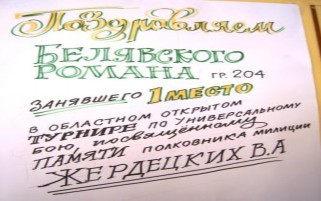 Поздравляем
БЕЛЯВСКОГО
РОМАНА ГР. 204
ЗАНЯВШЕГО 1 МЕСТО
В ОБЛАСТНОМ ОТКРЫТОМ
ТУРНИРЕ ПО УНИВЕРСАЛЬНОМУ
БОЮ, посвящённому
ПАМЯТИ ПОЛКОВНИКА МИЛИЦИИ
ЖЕРДЕЦКИХ В.А